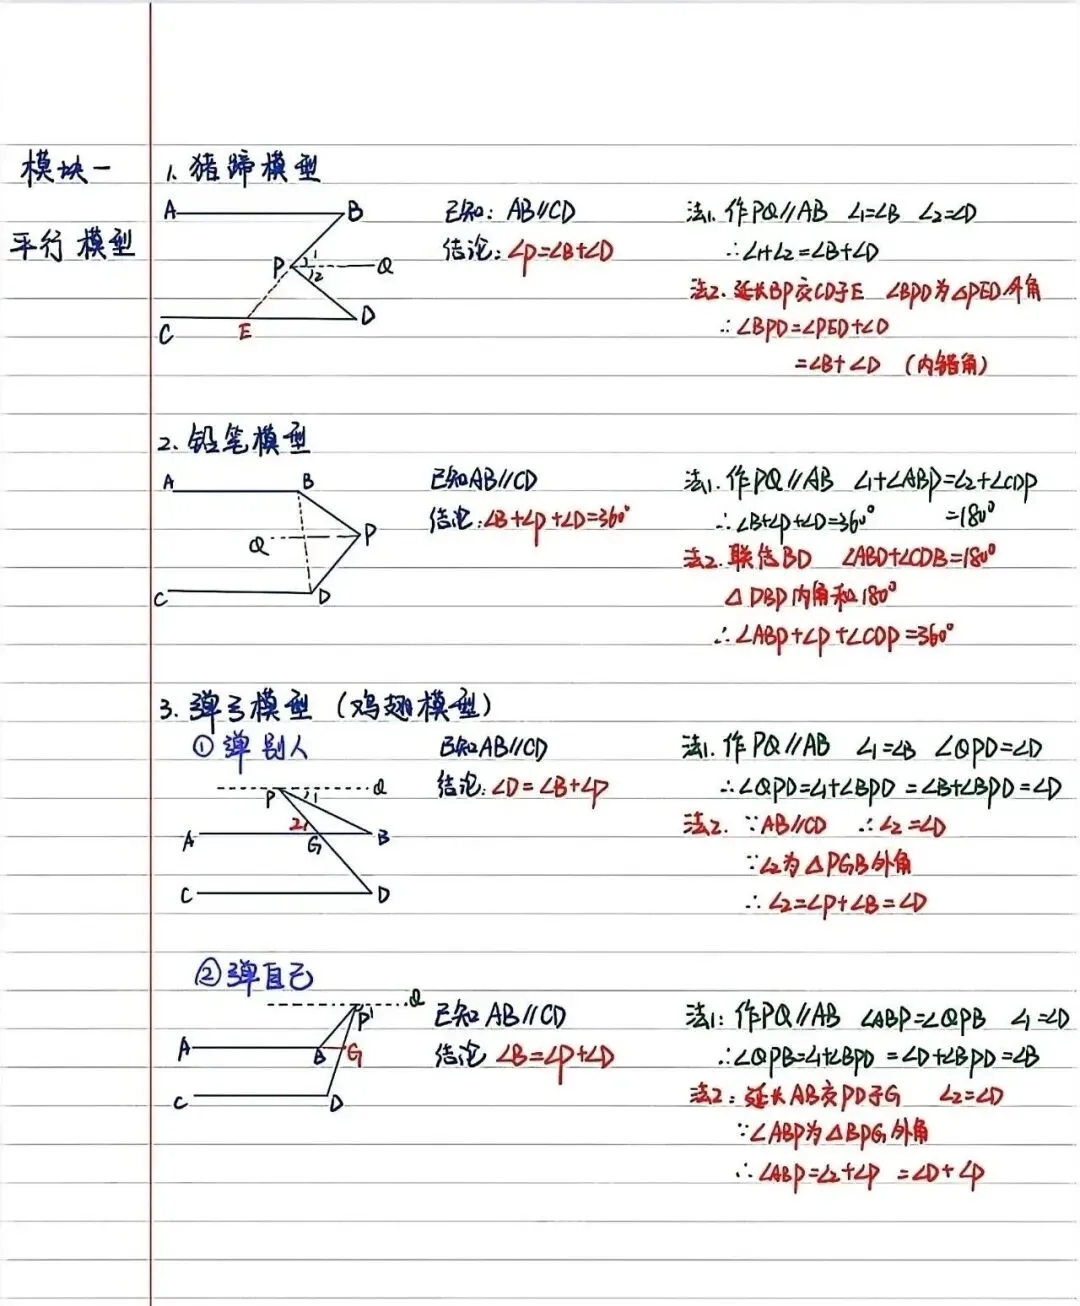 模块一
平行模型
1. 猪蹄模型
A B
P 1 2 Q
C E D
已知: AB∥CD
结论: ∠P=∠B+∠D
法1. 作PQ∥AB ∠1=∠B ∠2=∠D
∴∠1+∠2=∠B+∠D
法2. 延长BP交CD于E ∠BPD为△PED外角
∴∠BPD=∠PED+∠D
=∠B+∠D (内错角)
2. 铅笔模型
A B
Q P
C D
已知AB∥CD
结论:∠B+∠P+∠D=360°
法1. 作PQ∥AB ∠1+∠ABP=∠2+∠CDP
∴∠B+∠P+∠D=360° =180°
法2. 联结BD ∠ABD+∠CDB=180°
△DBP内角和180°
∴∠ABP+∠P+∠CDP=360°
3. 弹弓模型 (鸡翅模型)
①弹别人
P 1 Q
2
A G B
C D
已知AB∥CD
结论:∠D=∠B+∠P
法1. 作PQ∥AB ∠1=∠B ∠QPD=∠D
∴∠QPD=∠1+∠BPD=∠B+∠BPD=∠D
法2. ∵AB∥CD ∴∠2=∠D
∵∠2为△PGB外角
∴∠2=∠P+∠B=∠D
②弹自己
P 1 Q
A B G
C D
已知AB∥CD
结论 ∠B=∠P+∠D
法1: 作PQ∥AB ∠ABP=∠QPB ∠1=∠D
∴∠QPB=∠1+∠BPD=∠D+∠BPD=∠B
法2: 延长AB交PD于G ∠2=∠D
∵∠ABP为△BPG外角
∴∠ABP=∠2+∠P=∠D+∠P